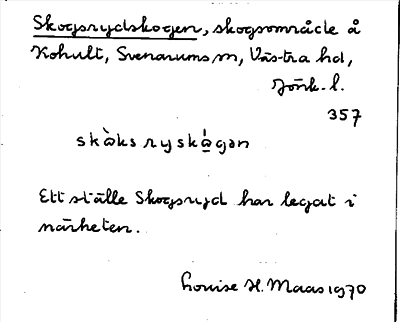 Skogsrydskogen, skogsområde å
Kohult, Svenarums sn, Västra hd,
Jönk. l.
357
skὰks ryskά̲gən
Ett ställe Skogsryd har legat i
närheten.
Louise H. Maas 1970